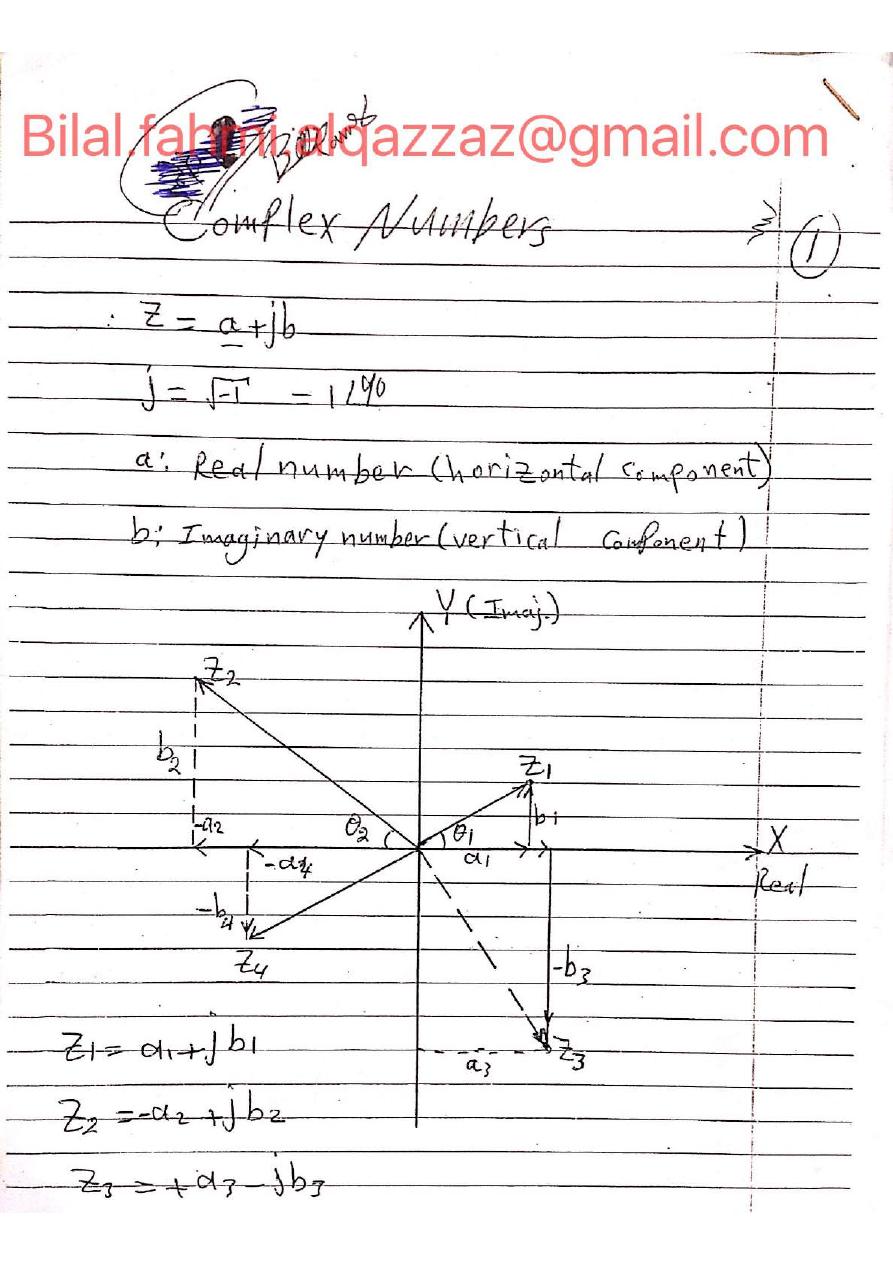 Bilal.fahmi.alqazzaz@gmail.com
Complex Numbers
1
Z = a + jb
j = √-1 = 1∠90
a: Real number (horizontal component)
b: Imaginary number (vertical component)
Y (Imaj.)
Z2
b2
Z1
b1
-a2
θ2
θ1
a1
X
Real
-a4
-b4
Z4
-b3
Z3
a3
Z1 = a1 + jb1
Z2 = -a2 + jb2
Z3 = +a3 - jb3